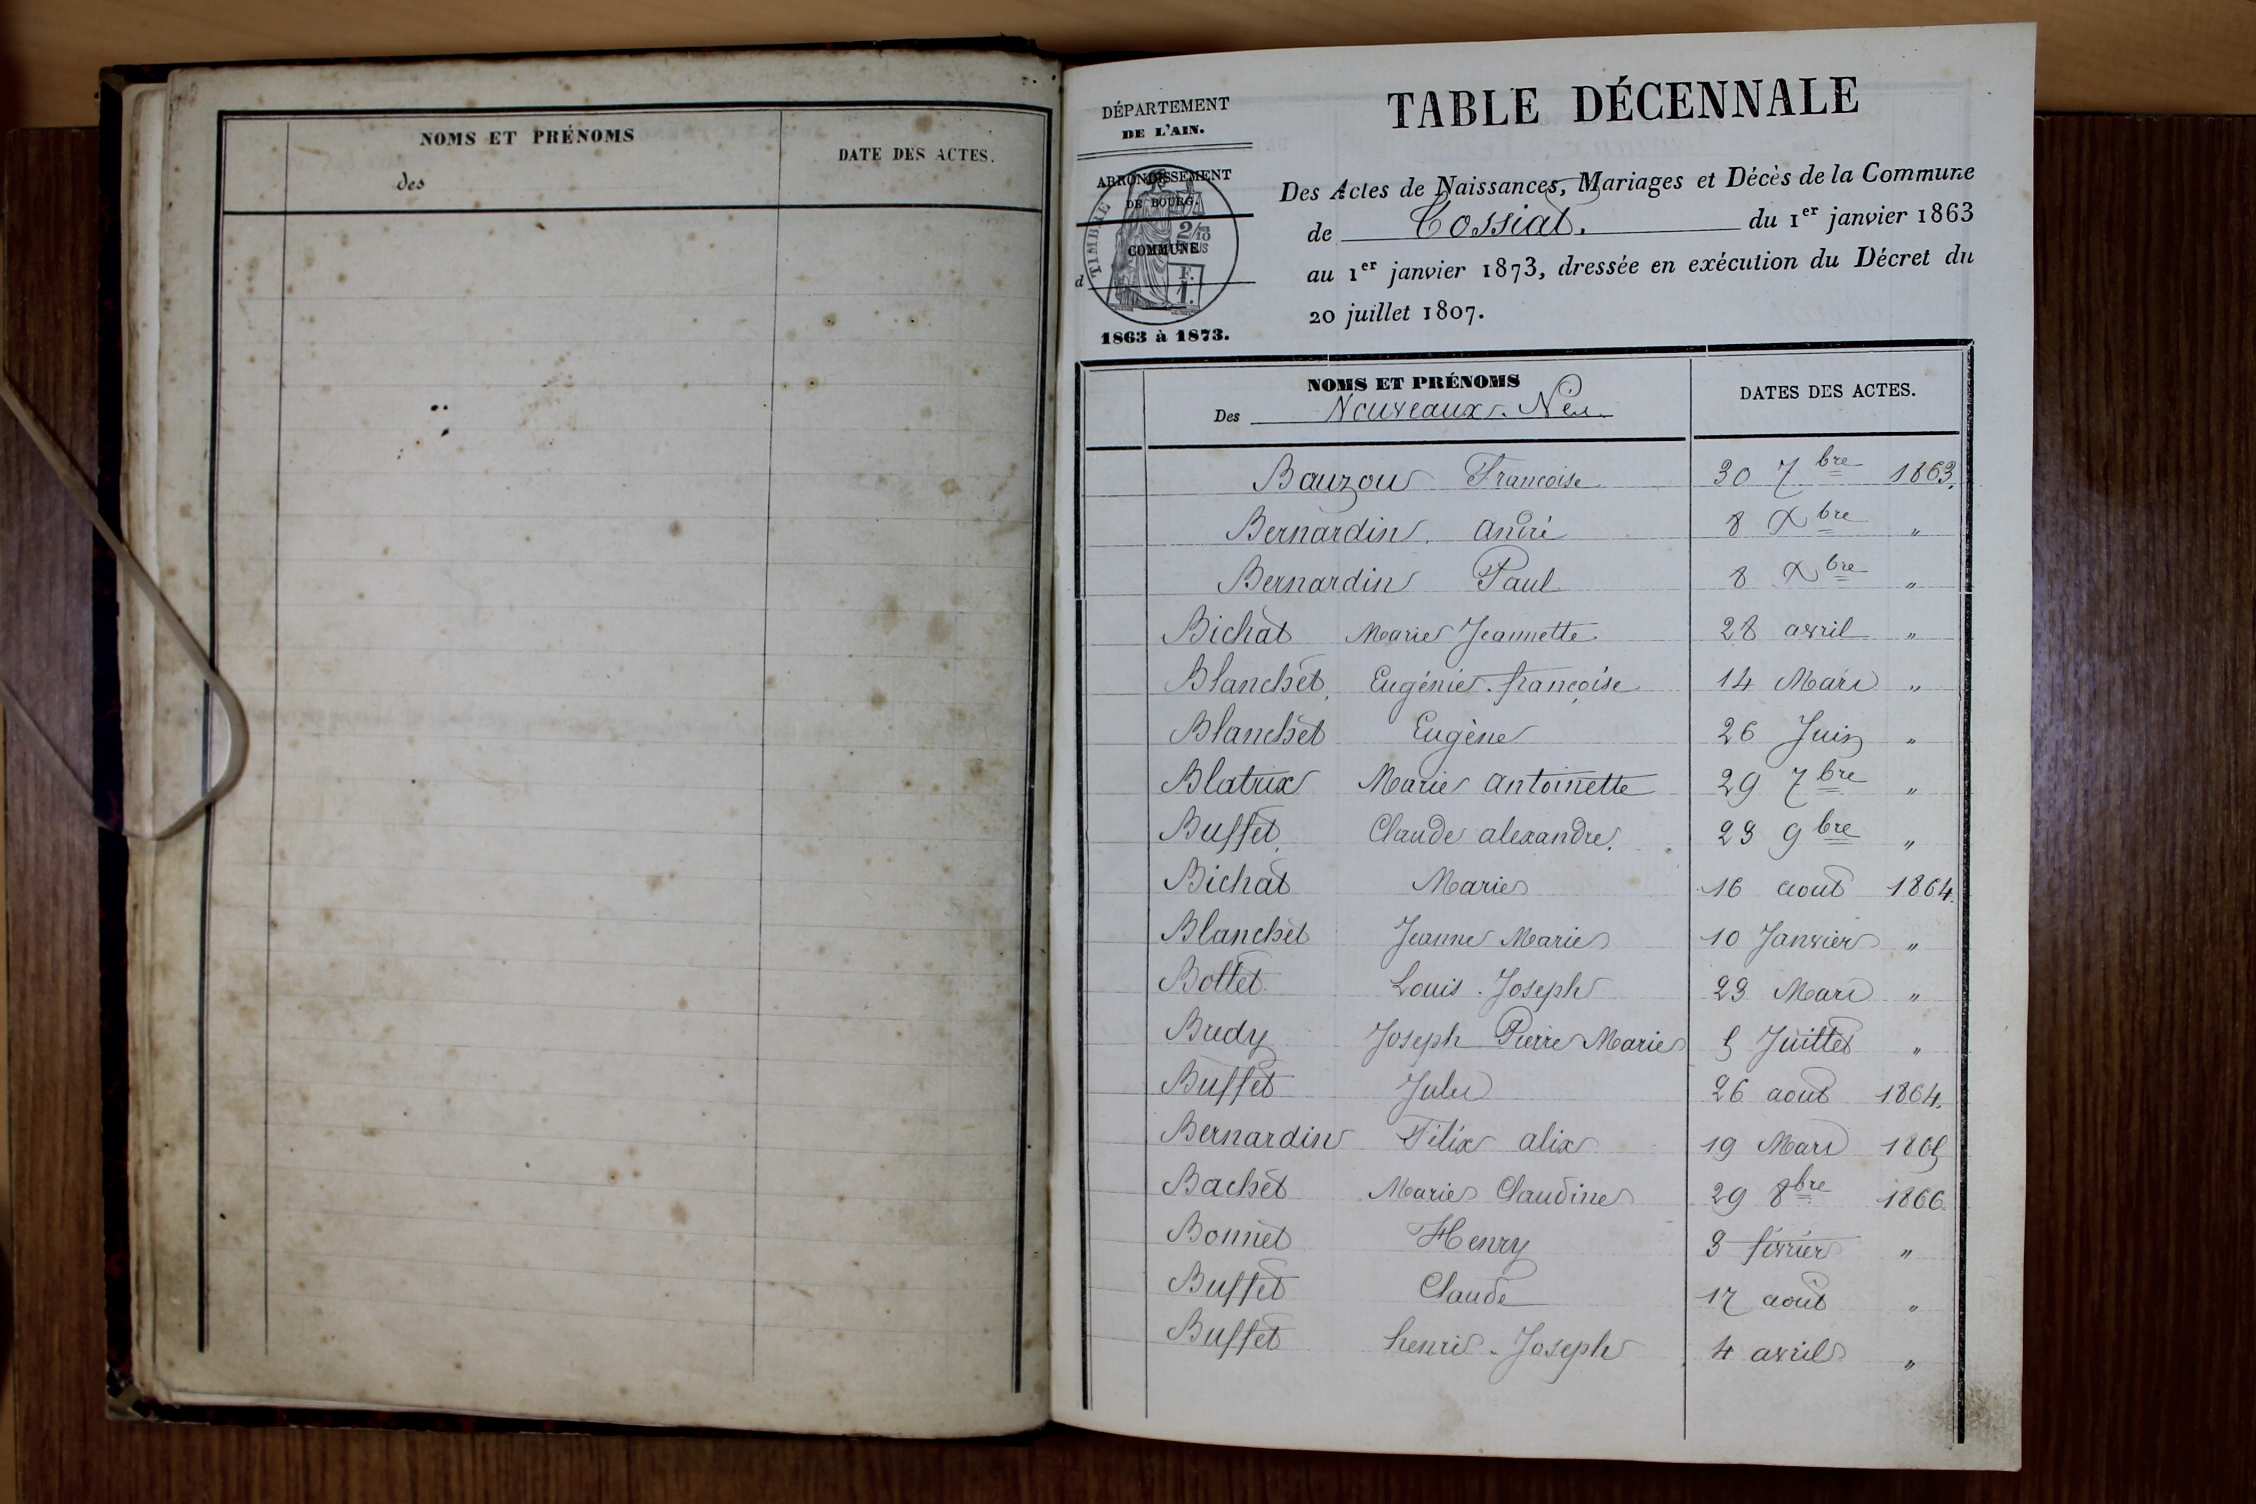 NOMS ET PRÉNOMS
des
DATE DES ACTES.
DÉPARTEMENT
DE L'AIN.
ARRONDISSEMENT
DE BOURG.
COMMUNE
d
TIMBRE
2/10
F.
1.
1863 à 1873.
TABLE DÉCENNALE
Des Actes de Naissances, Mariages et Décès de la Commune
de Cossiat. du 1er janvier 1863
au 1er janvier 1873, dressée en exécution du Décret du
20 juillet 1807.
NOMS ET PRÉNOMS
Des Nouveaux-Nés
DATES DES ACTES.
Bauzou Francoise 30 7bre 1863.
Bernardin André 8 Xbre "
Bernardin Paul 8 Xbre "
Bichat Marie Jeannette 28 avril "
Blanchet Eugénie françoise 14 Mars "
Blanchet Eugène 26 Juin "
Blatrix Marie antoinette 29 7bre "
Buffet Claude alexandre. 23 9bre "
Bichat Marie 16 aout 1864.
Blanchet Jeanne Marie 10 Janvier "
Bottet Louis Joseph 23 Mars "
Bredy Joseph Pierre Marie 5 Juillet "
Buffet Jules 26 aout 1864.
Bernardin Félix alix 19 Mars 1865
Bachet Marie Claudine 29 8bre 1866
Bonnet Henry 3 février "
Buffet Claude 17 août "
Buffet henri-Joseph 4 avril "